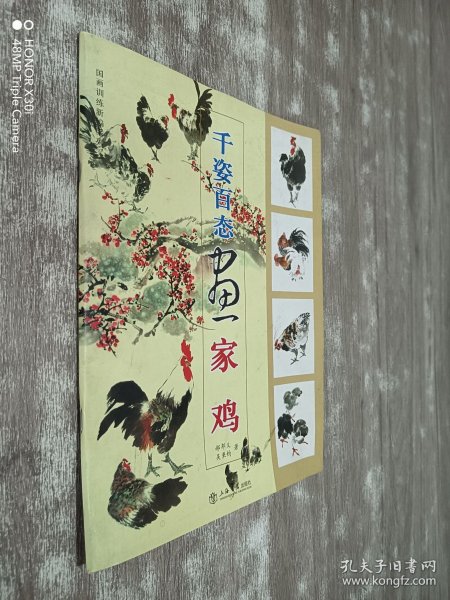 HONOR X30i
48MP Triple Camera
国画训练新
千姿百态
画
家鸡
著
上海
出版社
孔夫子旧书网
www.kongfz.com